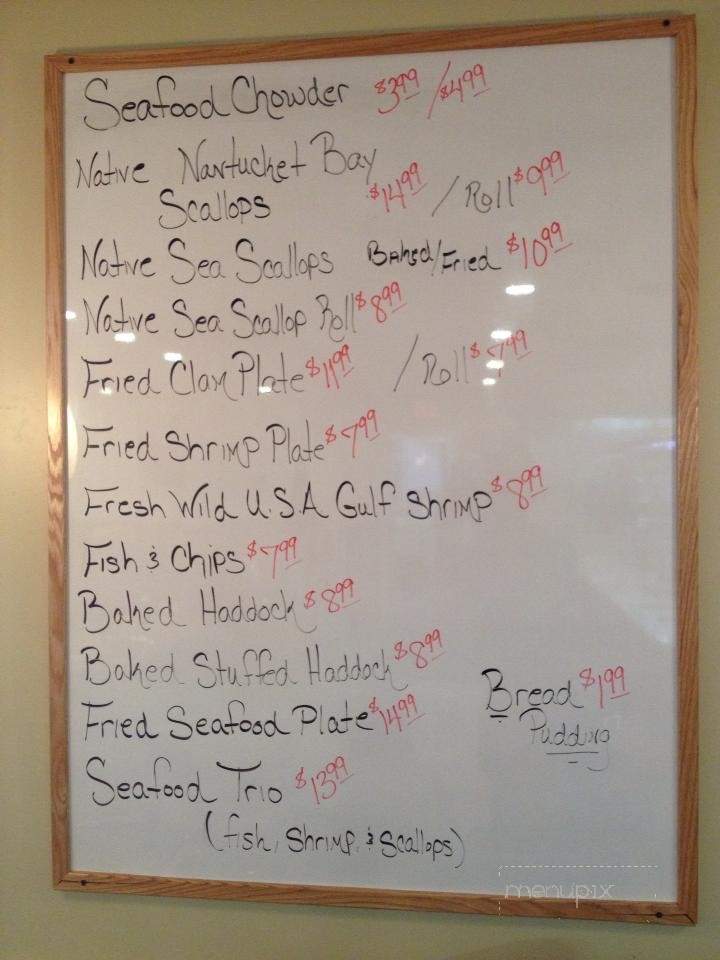 Seafood Chowder $3.99 / $4.99
Native Nantucket Bay
Scallops $14.99 / Roll $9.99
Native Sea Scallops Baked/Fried $10.99
Native Sea Scallop Roll $8.99
Fried Clam Plate $11.99 / Roll $7.99
Fried Shrimp Plate $7.99
Fresh Wild U.S.A Gulf Shrimp $8.99
Fish & Chips $7.99
Baked Haddock $8.99
Baked Stuffed Haddock $8.99
Fried Seafood Plate $14.99
Bread $1.99
Pudding
Seafood Trio $13.99
(fish, shrimp, & scallops)
menupix